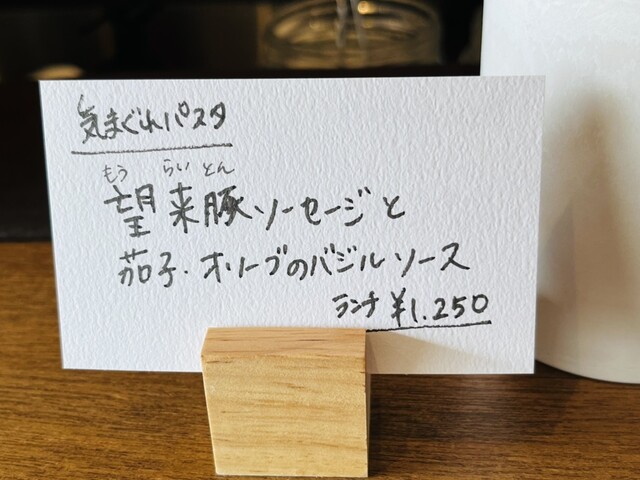 気まぐれパスタ
もう らい とん
望来豚ソーセージと
茄子・オリーブのバジルソース
ランチ ¥1.250